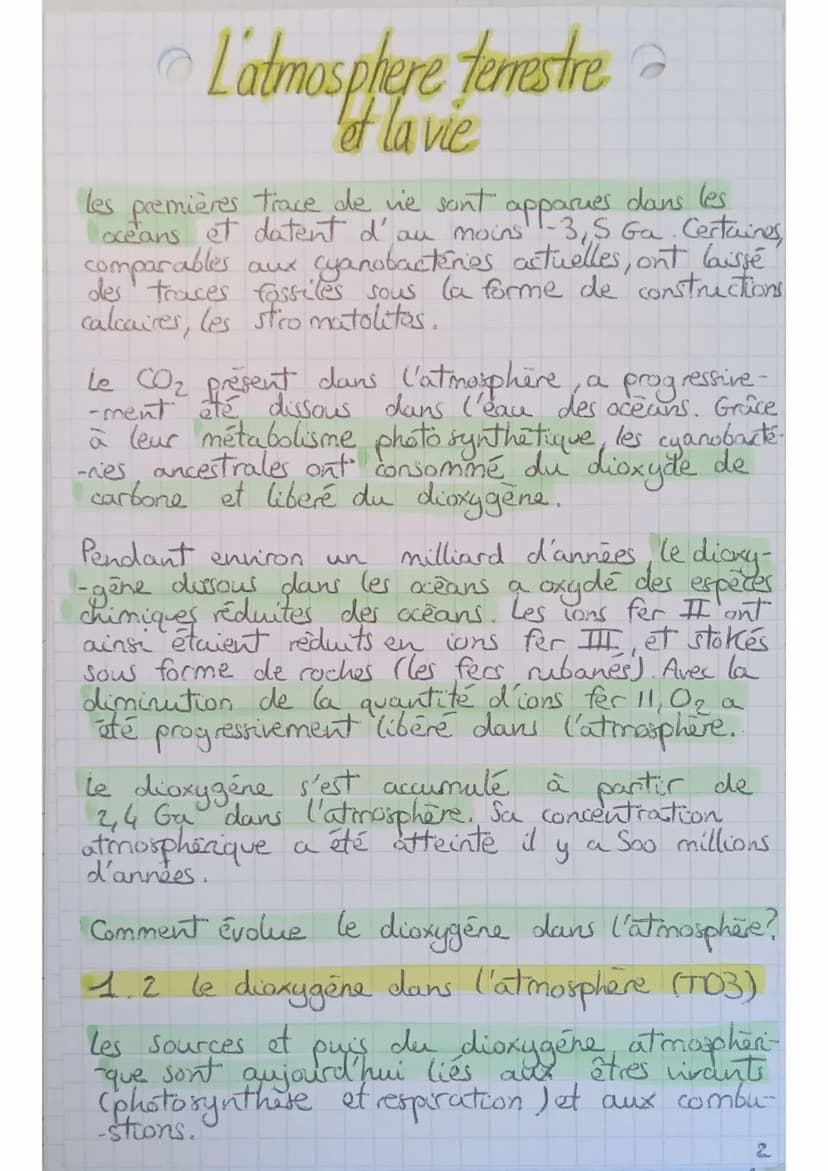 L'atmosphere terrestre
et la vie
les premières trace de vie sont apparues dans les
océans et datent d'au moins -3,5 Ga. Certaines,
comparables aux cyanobactéries actuelles, ont laissé
des traces fossiles sous la forme de constructions
calcaires, les stromatolites.
Le CO2 présent dans l'atmosphère, a progressive-
-ment été dissous dans l'eau des océans. Grâce
à leur métabolisme photosynthétique, les cyanobacté-
-ries ancestrales ont consommé du dioxyde de
carbone et libéré du dioxygène.
Pendant environ un milliard d'années le dioxy-
-gène dissous dans les océans a oxydé des espèces
chimiques réduites des océans. Les ions fer II ont
ainsi étaient réduits en ions fer III, et stokés
sous forme de roches (les fers rubanés). Avec la
diminution de la quantité d'ions fer II, O2 a
été progressivement libéré dans l'atmosphère.
Le dioxygène s'est accumulé à partir de
2,4 Ga dans l'atmosphère. Sa concentration
atmosphérique a été atteinte il y a 500 millions
d'années.
Comment évolue le dioxygène dans l'atmosphère?
1.2 le dioxygène dans l'atmosphère (TD3)
Les sources et puis du dioxygène atmosphéri-
-que sont aujourd'hui liés aux êtres vivants
(photosynthèse et respiration) et aux combu-
-stions.
2